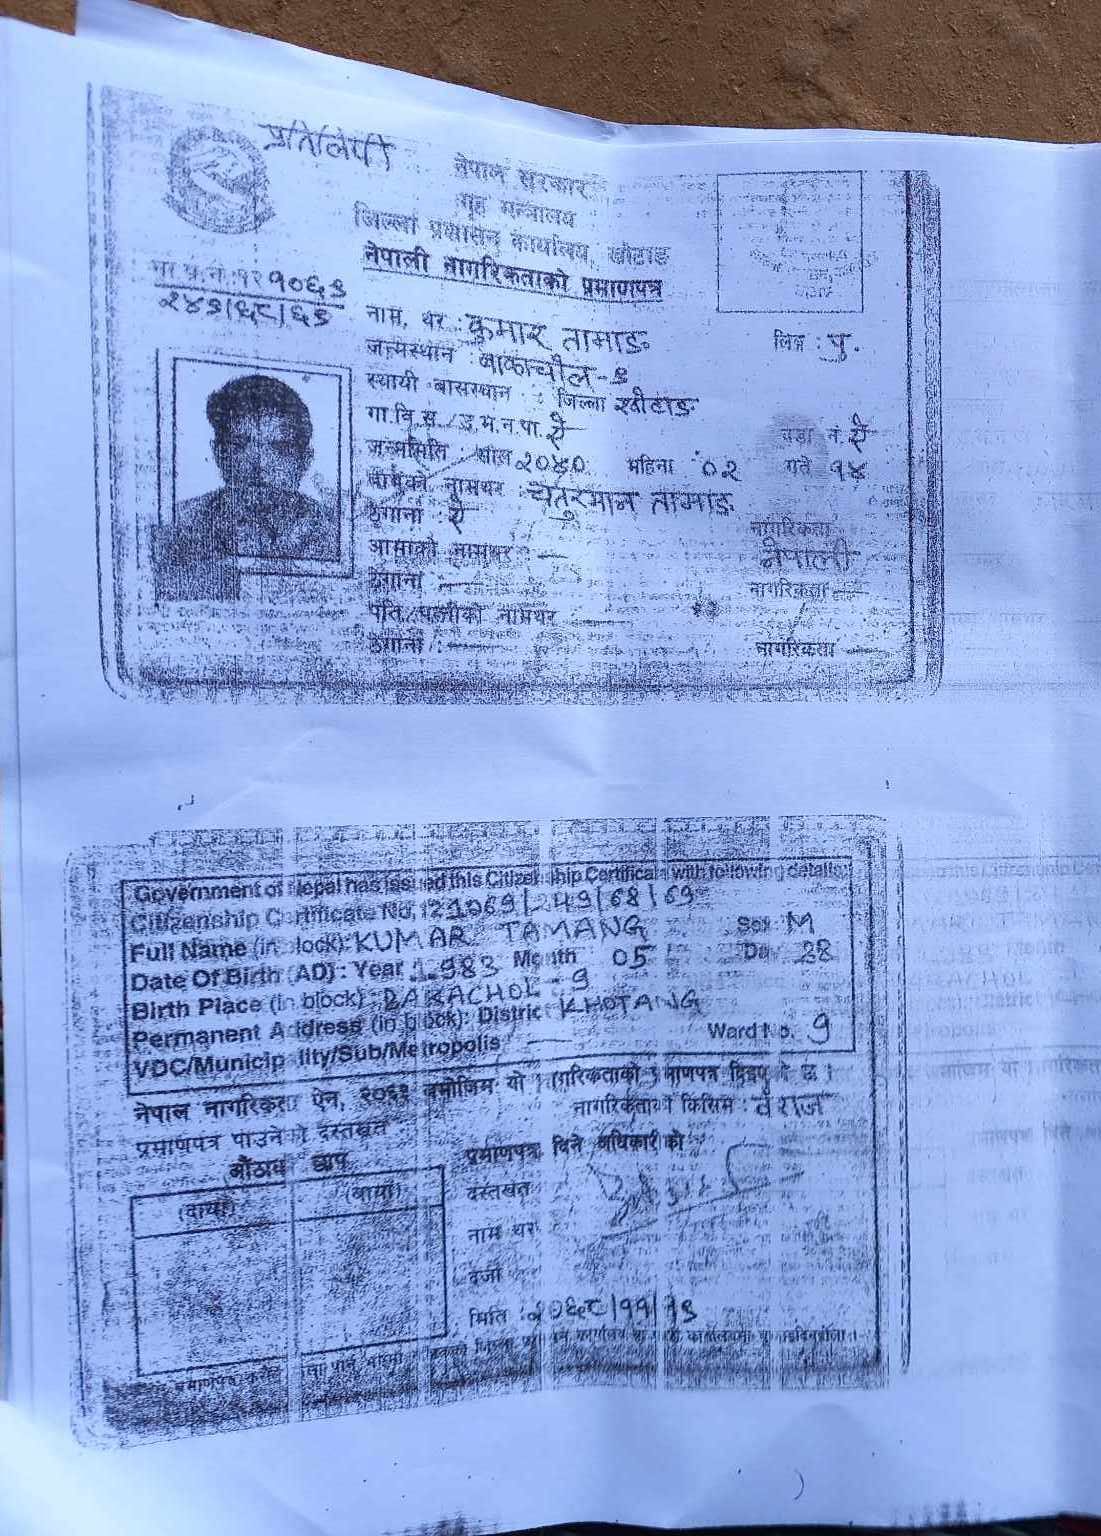 प्रतिलिपी
नेपाल सरकार
गृह मन्त्रालय
जिल्ला प्रशासन कार्यालय, खोटाङ
नेपाली नागरिकताको प्रमाणपत्र
ना.प्र.नं.:१२१०६९
२४९/६८/६९
नाम, थर : कुमार तामाङ लिङ्ग : पु.
जन्मस्थान : बाकाचोल-९
स्थायी बासस्थान : जिल्ला खोटाङ
गा.वि.स./उ.म.न.पा. ऐ वडा नं. ऐ
जन्ममिति : साल २०४० महिना ०२ गते १४
बाबुको नामथर : चतुरमान तामाङ
ठेगाना : ऐ नागरिकता :
नेपाली
आमाको नामथर : —
ठेगाना : — नागरिकता —
पति/पत्नीको नामथर —
ठेगाना : — नागरिकता —
Government of Nepal has issued this Citizenship Certificate with following details:
Citizenship Certificate No. 121069/249/68/69
Full Name (in block): KUMAR TAMANG Sex M
Date Of Birth (AD): Year 1983 Month 05 Day 28
Birth Place (in block): BAKACHOL-9
Permanent Address (in block): District KHOTANG
VDC/Municipality/Sub/Metropolis — Ward No. 9
नेपाल नागरिकता ऐन, २०६३ बमोजिम यो नागरिकताको प्रमाणपत्र दिइएको छ ।
नागरिकताको किसिम : वंशज
प्रमाणपत्र पाउनेको दस्तखत
औंठाको छाप
(दायाँ) (बायाँ)
प्रमाणपत्र दिने अधिकारीको
दस्तखत
नाम थर
दर्जा
मिति : २०६८/११/१९